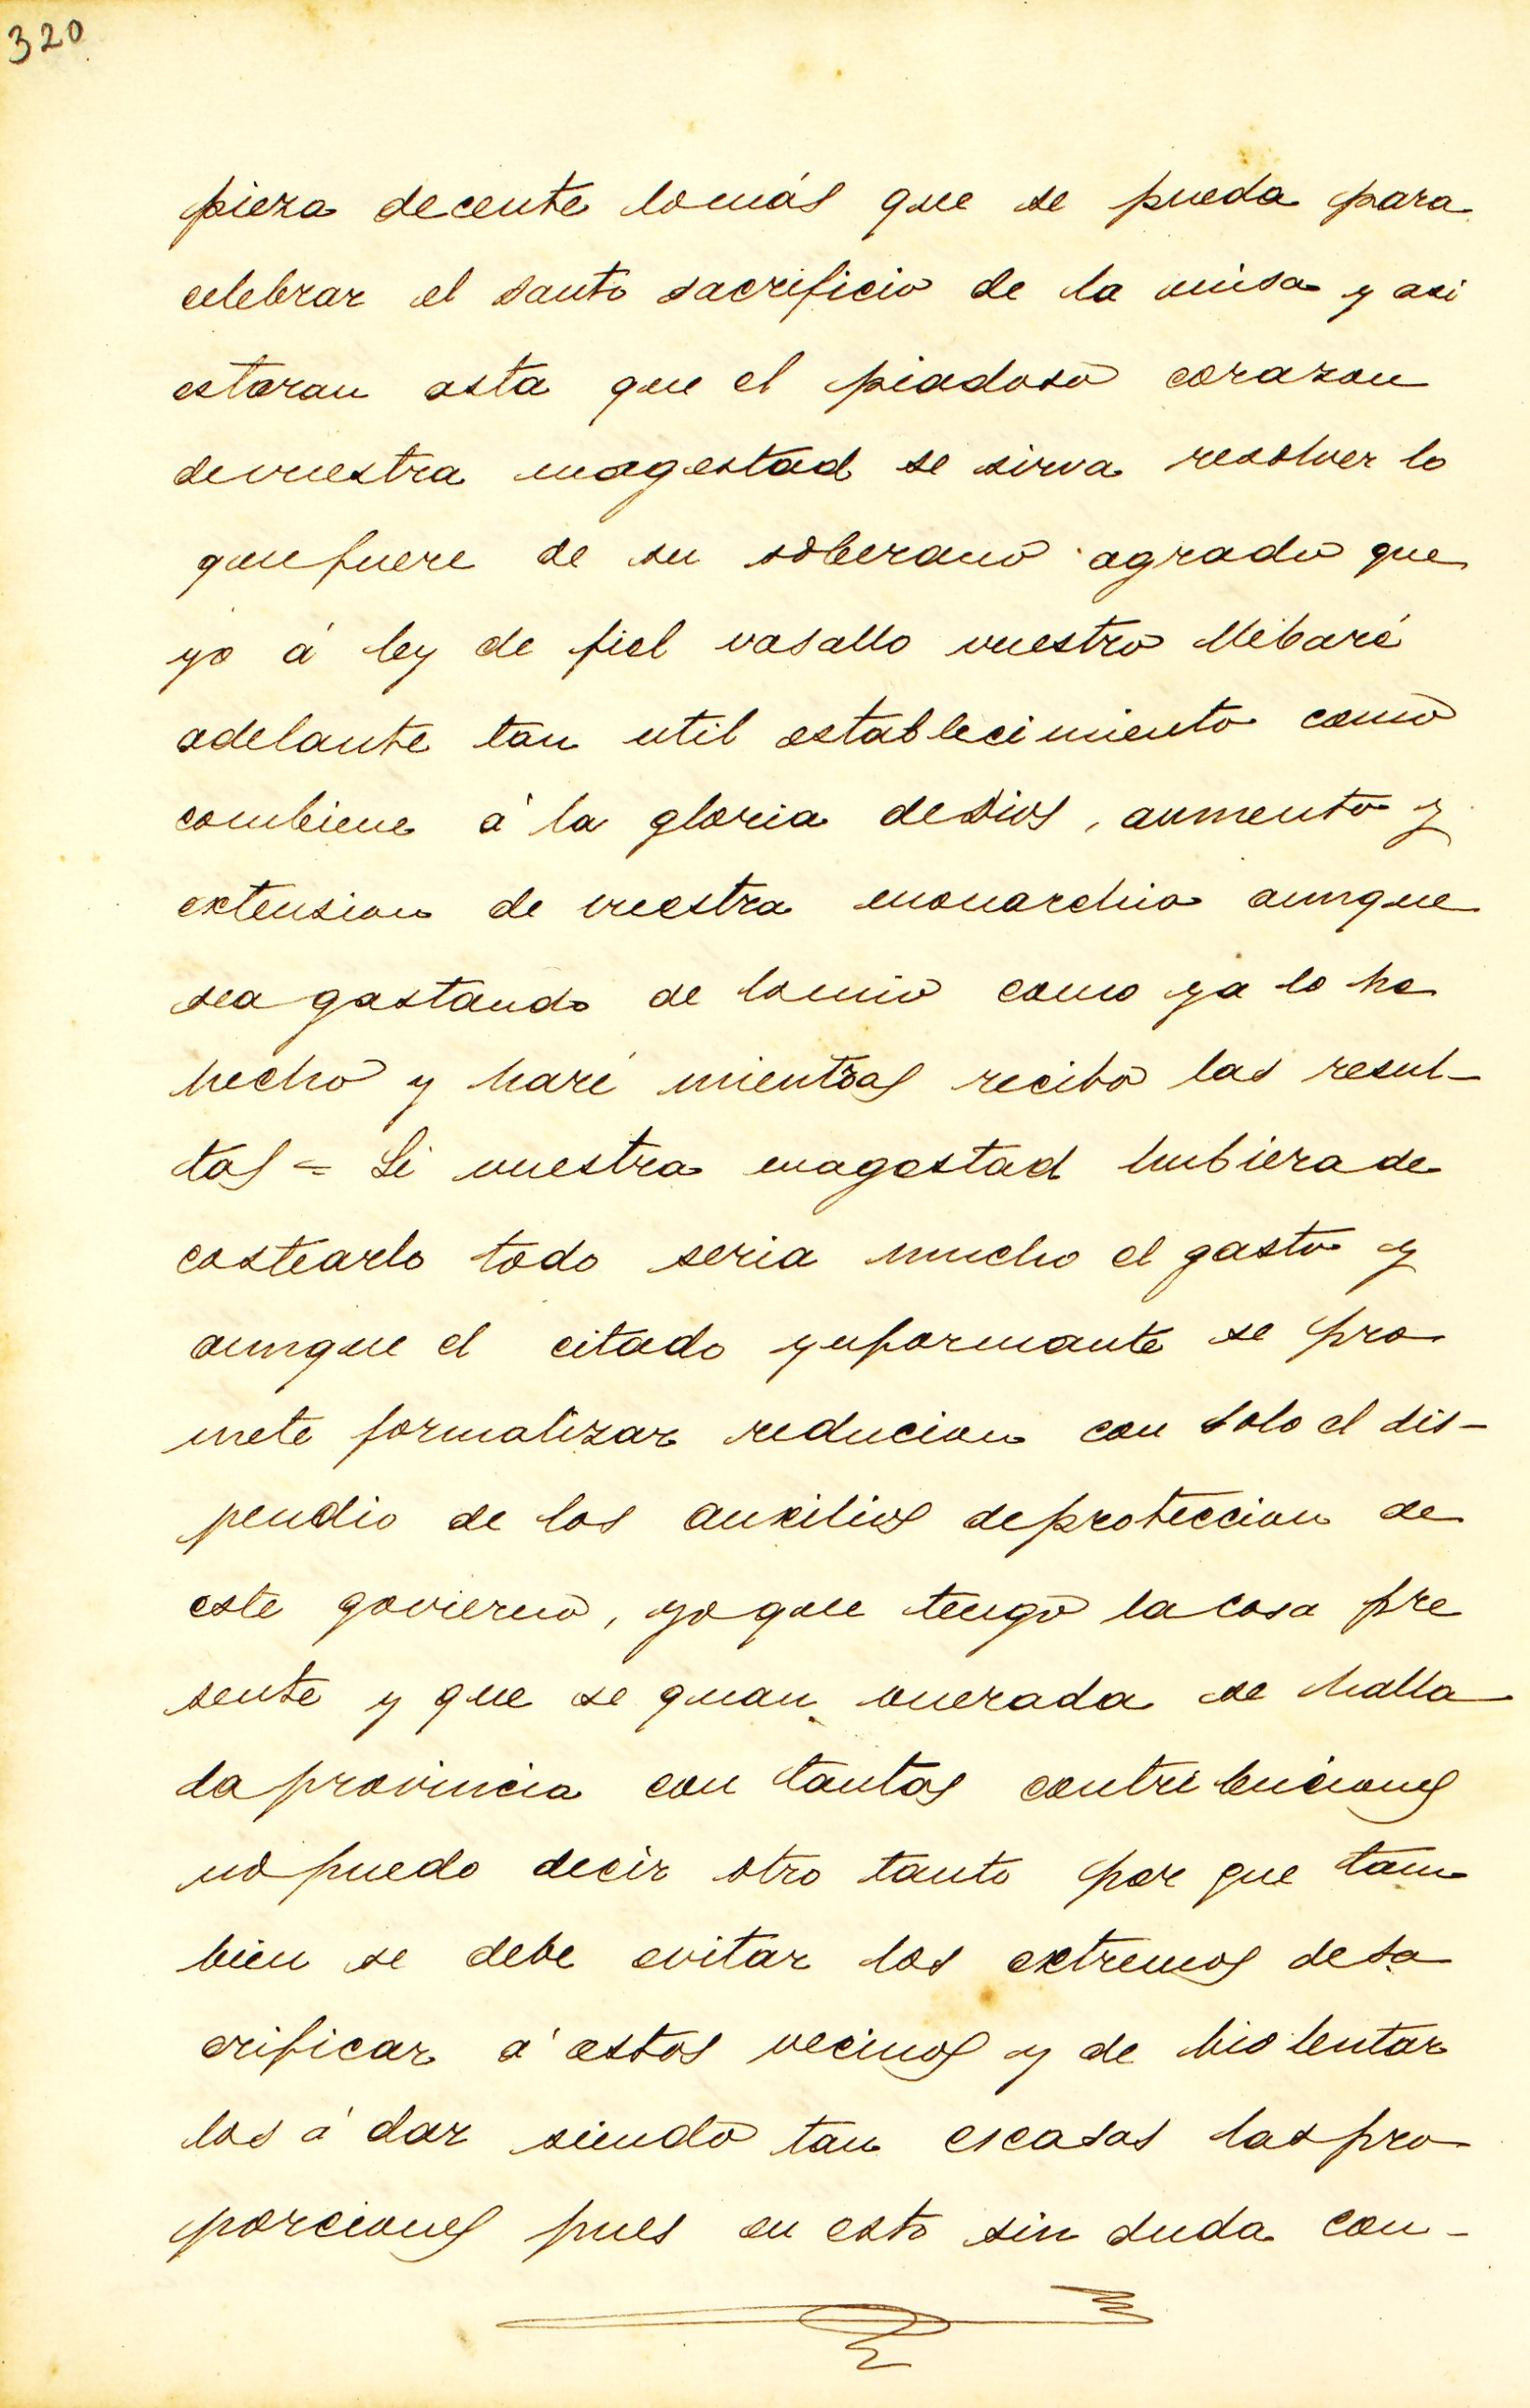 320
pieza decente lomás que se pueda para
celebrar el santo sacrificio de la misa y asi
estaran asta que el piadoso corazon
devuestra magestad se sirva resolver lo
quefuere de su soberano agrado que
yo á ley de fiel vasallo vuestro llebaré
adelante tan util establecimiento como
combiene á la gloria deDios, aumento y
extension de vuestra monarchia aunque
sea gastando de lomio como ya lo he
hecho y haré mientras recibo las resul-
tas = Si vuestra magestad hubierade
costearlo todo seria mucho el gasto y
aunque el citado ynformante se pro
mete formalizar reducion con solo el dis-
pendio de los auxilios deproteccion de
este govierno, yoque tengo lacosa pre
sente y que se quan onerada se halla
la provincia con tantas contribuciones
nopuedo decir otro tanto por que tam
bien se debe evitar los extremos desa
crificar á estos vecinos y de biolentar
los á dar siendo tan escasas laspro
porciones pues en esto sin duda con-